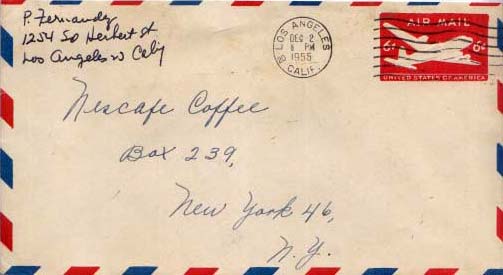 P. Fernandz
1254 So Herbert st
Los Angeles 23 Calif
LOS ANGELES
CALIF.
DEC 2
8 PM
1955
AIR MAIL
6¢ 6¢
UNITED STATES OF AMERICA
Nescafe Coffee
Box 239,
New York 46,
N.Y.